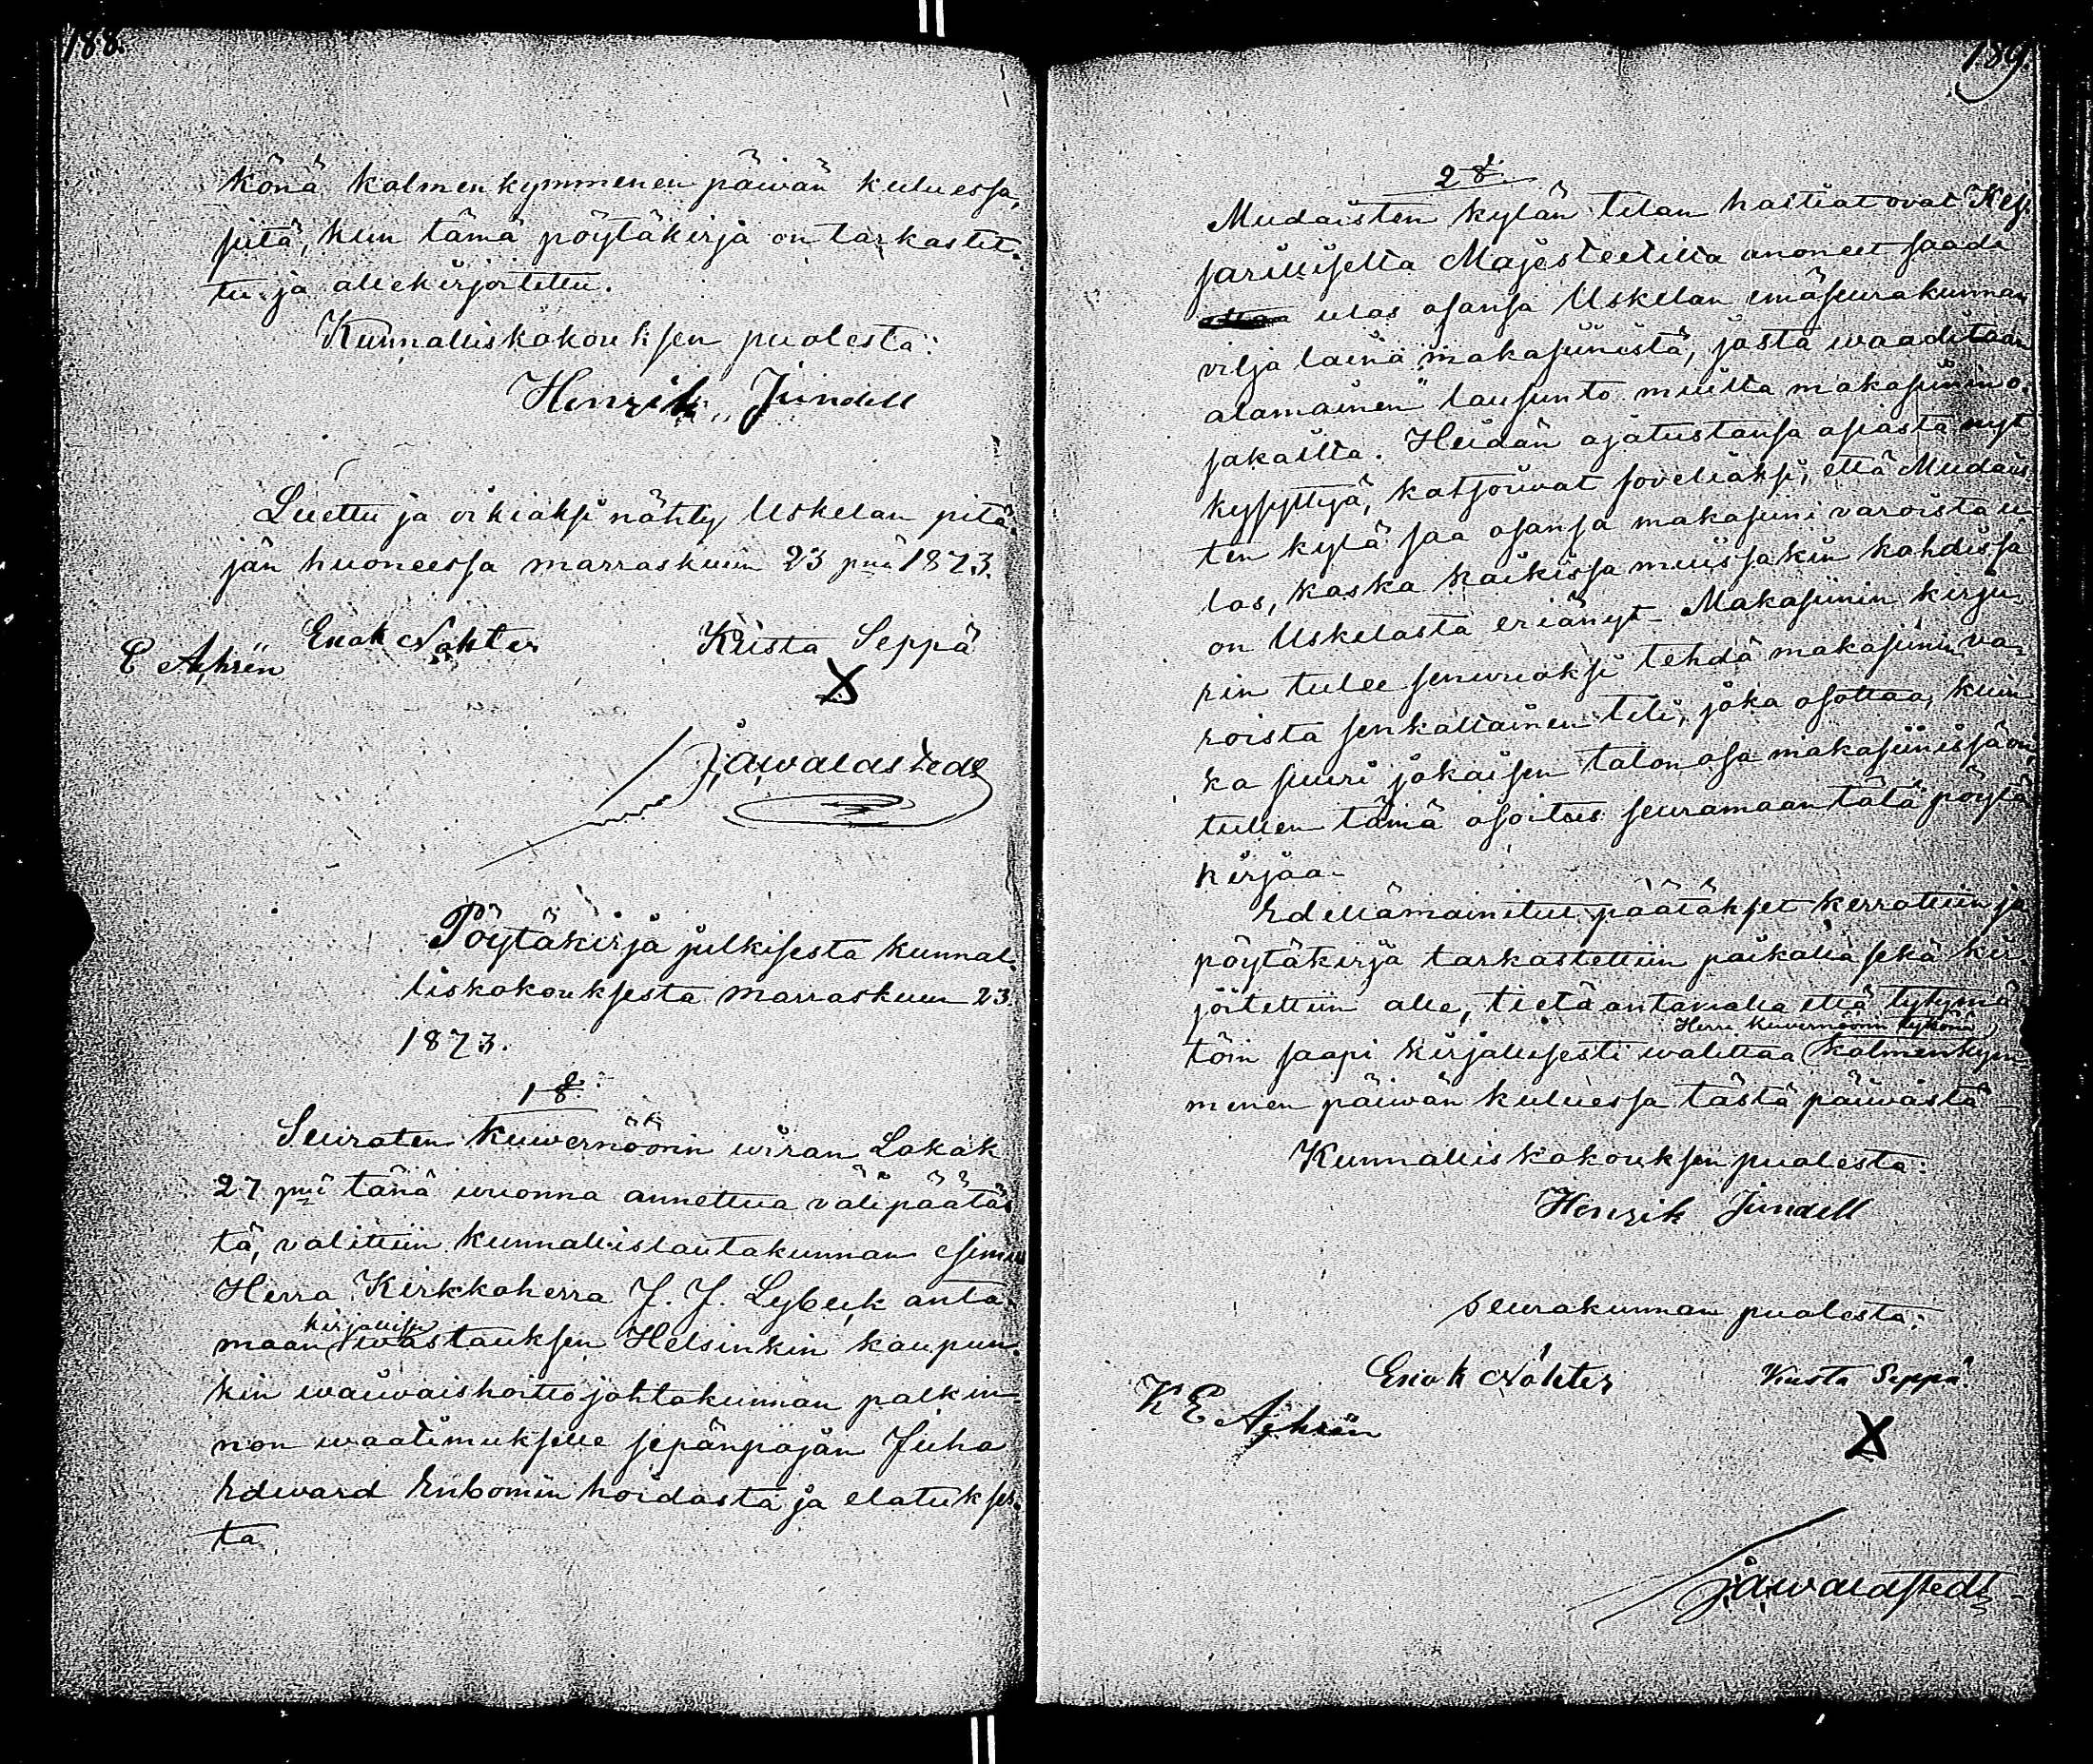 188.
könä kolmenkymmenen päiwän kuluessa,
siitä, kun tämä pöytäkirja on tarkastet-
tu ja allekirjoitettu.
Kunnalliskokouksen puolesta:
Henrik Jündell
Luettu ja oikiaksi nähty Uskelan pitä-
jän huoneessa marraskuun 23 pnä 1873.
E Äyhrén Enok Nohter Kusta Seppä
X
J A Waldstedt
Pöytäkirja julkisesta kunnal-
liskokouksesta marraskuun 23
1873.
1 §.
Seuraten Kuwernöörin wiran Lokak
27 pnä tänä wuonna annettua välipäätös
tä, valittiin kunnallislautakunnan esimies
Herra Kirkkoherra J. J. Lybeck anta-
maan kirjallisen wastauksen Helsinkin kaupun-
kin waiwaishoitojohtokunnan palkin-
non waatimukselle sepänpojan Juha
Edward Enbomin hoidosta ja elatukses-
ta
189.
2 §.
Mudaisten kylän tilan haltiat ovat Kej-
sarilliselta Majesteetilta anoneet saada
ulos osansa Uskelan emäseurakunnan
vilja laina makasiinista, josta waaditaan
alamainen lausunto muilta makasiinin o-
sakailta. Heidän ajatustansa asiasta nyt
kysyttyä, katsoiwat soveliaksi, että Mudais
ten kylä saa osansa makasiini varoista u-
los, koska kaikissa muissakin kohdissa
on Uskelasta eriänyt. Makasiinin kirju-
rin tulee senwuoksi tehdä makasiinin va-
roista senkaltainen tili, joka osottaa, kuin
ka suuri jokaisen talon osa makasiinissa on
tullen tämä osoitus seuramaan tätä pöytä
kirjaa.
Edellämainitut päätökset kerrottiin ja
pöytäkirja tarkastettiin paikalla sekä kir-
joitettiin alle, tietä antamalla että tytymä
töin saapi kirjallisesti walittaa Herra Kuwernöörin tykönä kolmenkym-
menen päiwän kuluessa tästä päiwästä
Kunnalliskokouksen puolesta:
Henrik Jündell
Seurakunnan puolesta:
K E Äyhrén Enok Nohter Kusta Seppä
X
J A Waldstedt